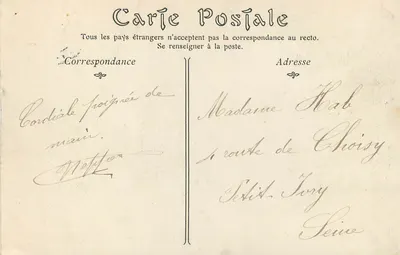 Carte Postale
Tous les pays étrangers n'acceptent pas la correspondance au recto.
Se renseigner à la poste.
Correspondance
Cordiale poignée de
main.
Adresse
Madame Hab
4 route de Choisy
Petit-Ivry
Seine